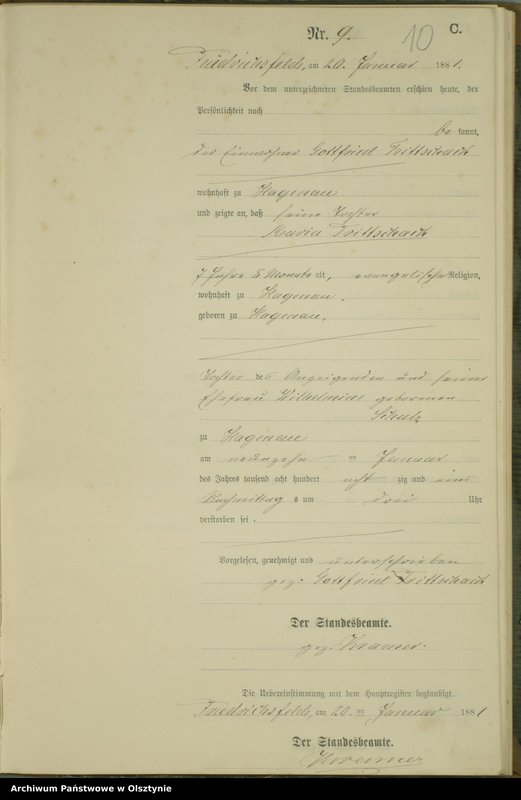 Nr. 9. 10 C.
Friedrichsfelde, am 20. Januar 1881.
Vor dem unterzeichneten Standesbeamten erschien heute, der
Persönlichkeit nach
be kannt,
der Einwohner Gottfried Trittschack
wohnhaft zu Hagenau
und zeigte an, daß seine Tochter
Maria Trittschack
7 Jahre 5 Monate alt, evangelischer Religion,
wohnhaft zu Hagenau,
geboren zu Hagenau,
Tochter des Anzeigenden und seiner
Ehefrau Wilhelmine geborenen
Schulz
zu Hagenau
am neunzehn ten Januar
des Jahres tausend acht hundert acht zig und eins
Nachmittag s um drei Uhr
verstorben sei.
Vorgelesen, genehmigt und unterschrieben
gez: Gottfried Trittschack
Der Standesbeamte.
gez: Kramer.
Die Uebereinstimmung mit dem Hauptregister beglaubigt.
Friedrichsfelde, am 20. ten Januar 1881
Der Standesbeamte.
Kramer
Archiwum Państwowe w Olsztynie